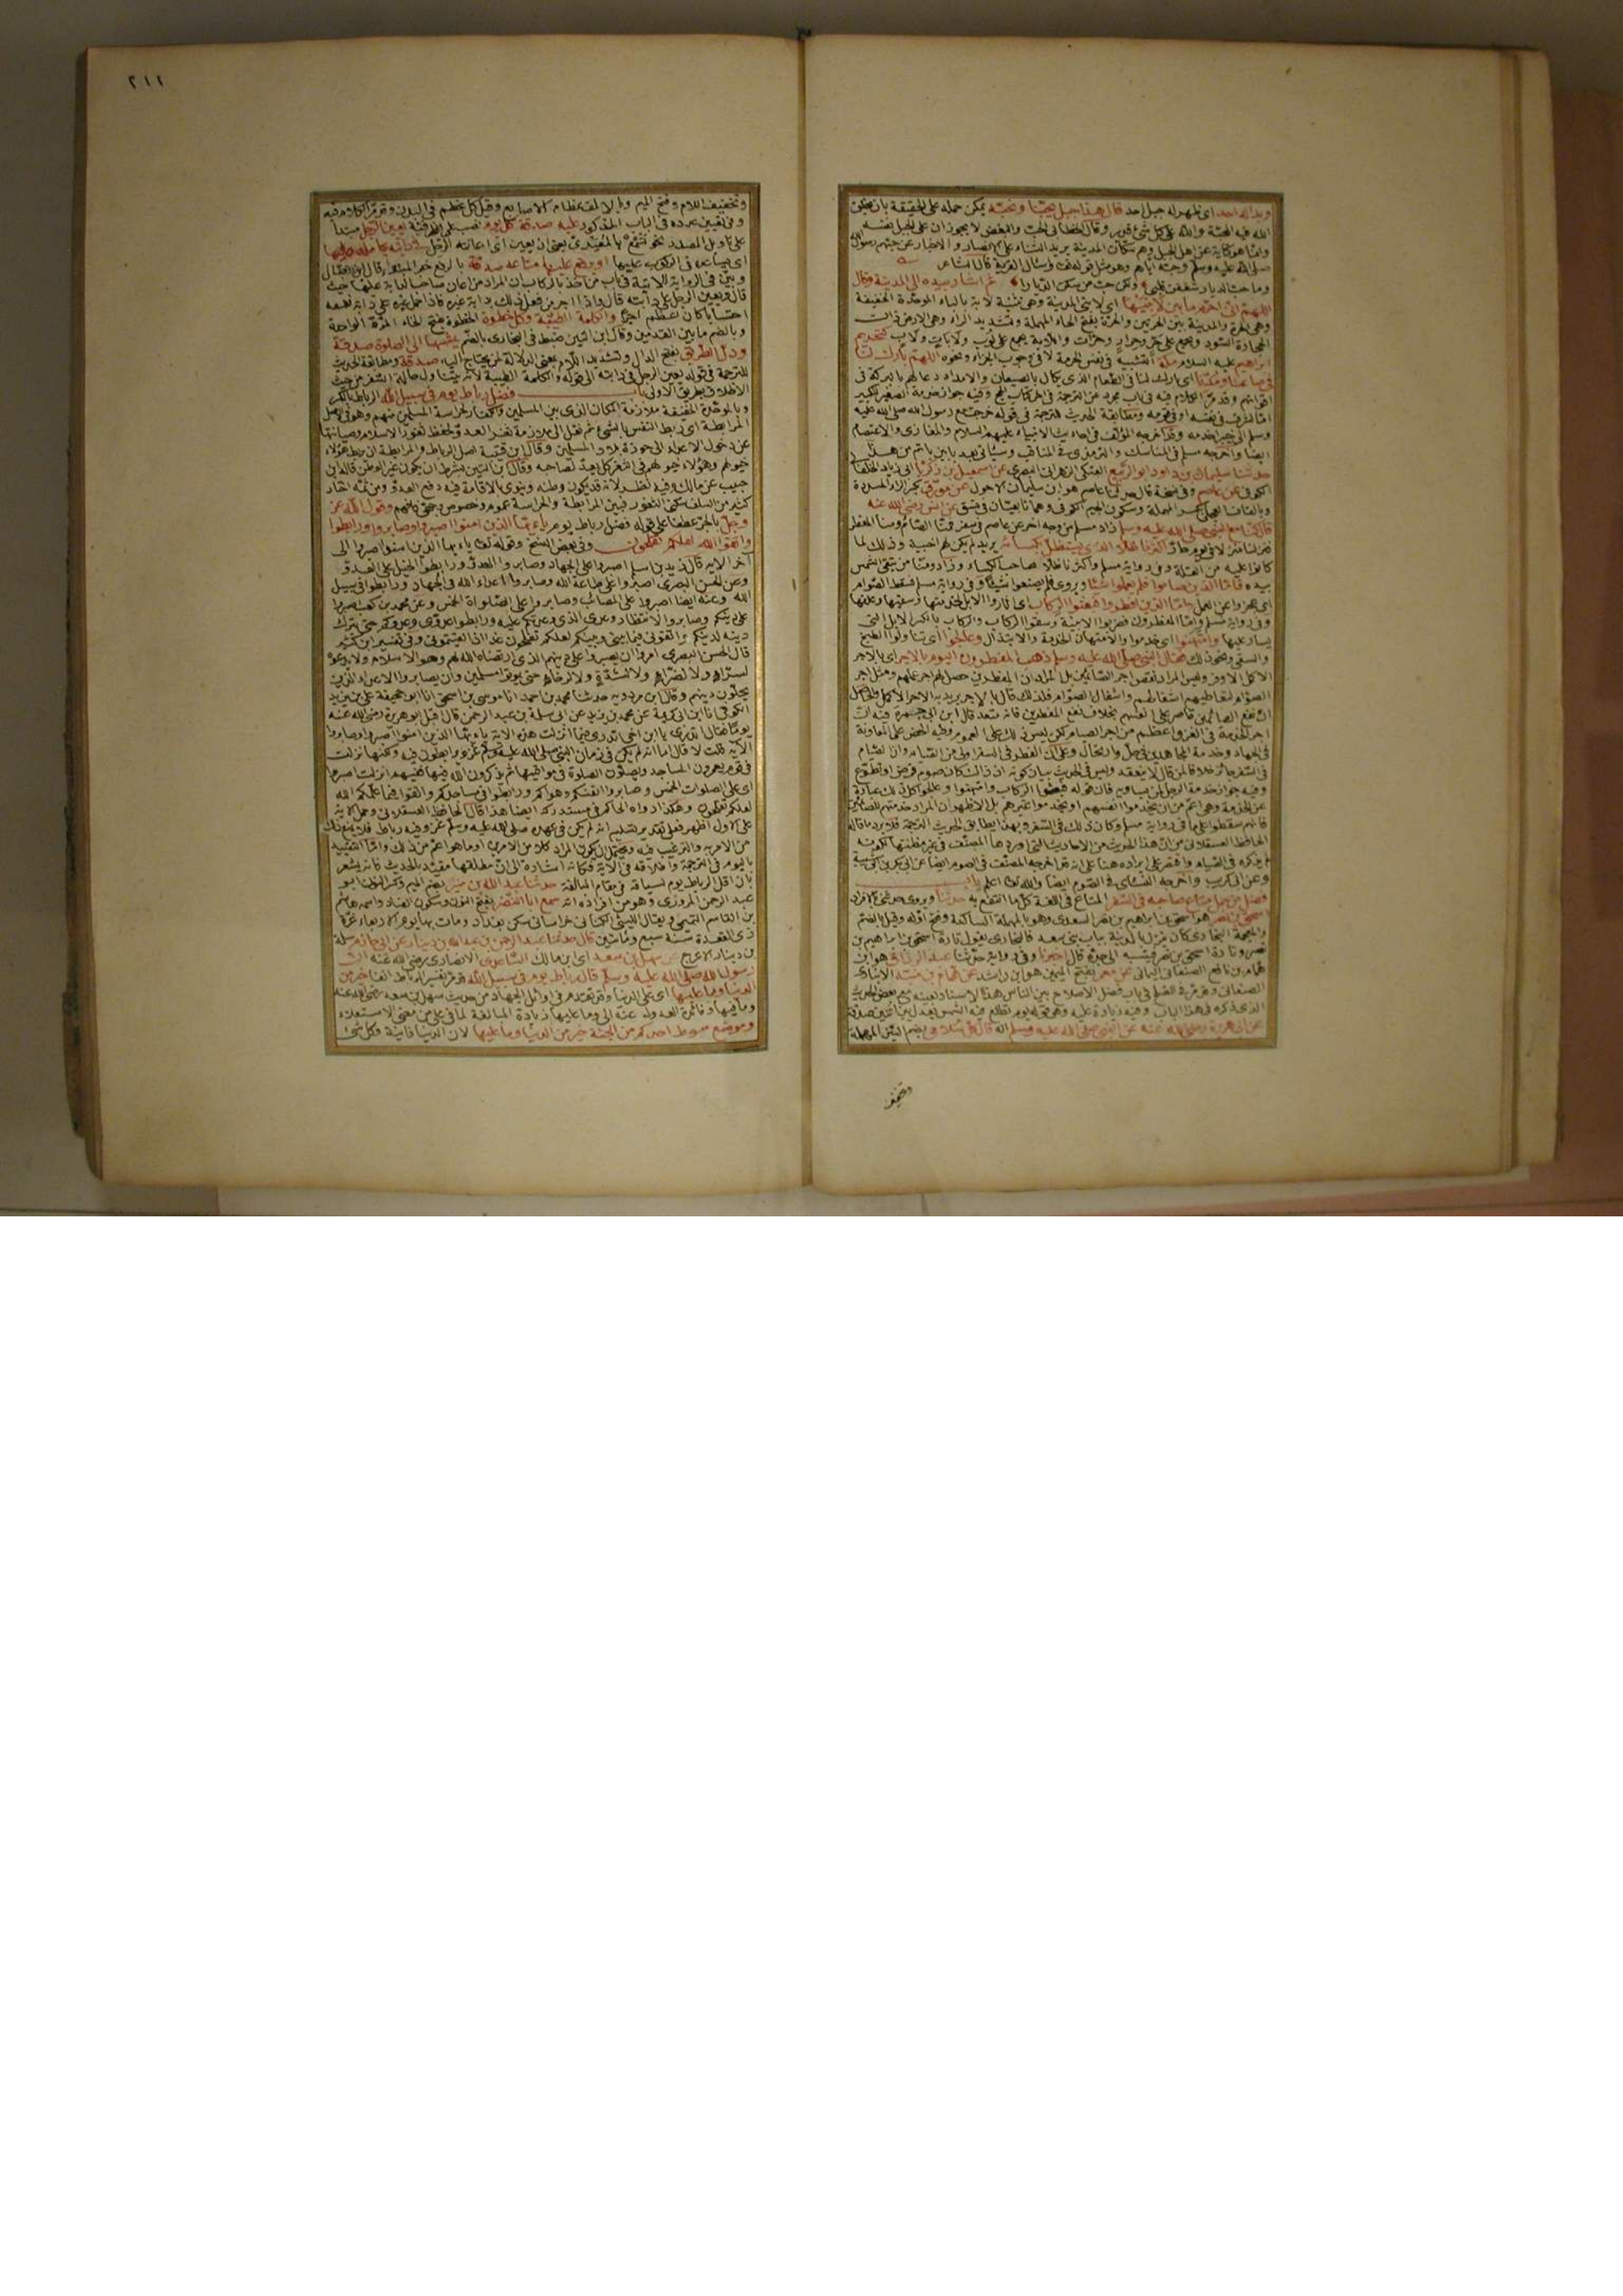 وبدا له احد اى ظهر له جبل احد قال هذا جبل يحبنا ونحبه يمكن حمله على الحقيقة بان يخلق
الله فيه المحبة والله على كل شئ قدير وقال الخطابى الحب والبغض لا يجوزان على الجبل نفسه
وانما هو كناية عن اهل الجبل وهم سكان المدينة يريد الثناء على الانصار والاخبار عن حبهم رسول الله
صلى الله عليه وسلم وحبه اياهم وهو مثل قوله تعالى واسأل القرية قال الشاعر
وما حب الديار شغفن قلبى ولكن حب من سكن الديارا ثم اشار بيده الى المدينة وقال
اللهم انى احرم ما بين لابتيها اى لابتى المدينة وهى تثنية لابة بالباء الموحدة الخفيفة
وهى الحرة والمدينة بين الحرتين والحرة بفتح الحاء المهملة وتشديد الراء وهى الارض ذات
الحجارة السود ويجمع على حر وحرار وحرات واللابة يجمع على لوب ولابات ولاب كتحريم
ابراهيم عليه السلام مكة التشبيه فى نفس الحرمة لا فى وجوب الجزاء ونحوه اللهم بارك لنا
فى صاعنا ومدنا اى بارك لنا فى الطعام الذى يكال بالصيعان والامداد دعا لهم بالبركة فى
اقواتهم وقد مر الكلام فيه فى باب مجرد عن الترجمة فى اخر كتاب الحج وفيه جواز خدمة الصغير للكبير
اما لشرف فى نفسه او فى قومه ومطابقة الحديث للترجمة فى قوله خرجت مع رسول الله صلى الله عليه
وسلم الى خيبر اخدمه وقد اخرجه المؤلف فى احاديث الانبياء عليهم السلام والمغازى والاعتصام
ايضا واخرجه مسلم فى المناسك والترمذى فى المناقب وسيأتى بعد بابين باتم من هذا
حدثنا سليمان بن داود ابو الربيع العتكى الزهرانى البصرى عن اسمعيل بن زكريا ابى زياد الخلقانى
الكوفى عن عاصم وفى نسخة قال حدثنا عاصم هو ابن سليمان الاحول عن مورق بكسر الراء المشددة
وبالقاف العجلى بكسر المهملة وسكون الجيم الكوفى وهما تابعيان فى نسق عن انس رضى الله عنه
قال كنا مع النبى صلى الله عليه وسلم زاد مسلم من وجه اخر عن عاصم فى سفر فمنا الصائم ومنا المفطر
فنزلنا منزلا فى يوم حار اكثرنا ظلا الذى يستظل بكسائه يريد لم يكن لهم اخبية وذلك لما
كانوا عليه من القلة وفى رواية مسلم واكثرنا ظلا صاحب الكساء وزاد ومنا من يتقى الشمس
بيده فاما الذين صاموا فلم يعملوا شيئا ويروى فلم يصنعوا شيئا وفى رواية مسلم فسقط الصوام
اى عجزوا عن العمل واما الذين افطروا فبعثوا الركاب اى اثاروا الابل لخدمتها وسقيها وعلفها
وفى رواية مسلم واما المفطرون فضربوا الابنية وسقوا الركاب والركاب بالكسر الابل التى
يسار عليها وامتهنوا اى خدموا والامتهان الخدمة والابتذال وعالجوا اى تناولوا الطبخ
والسقى ونحو ذلك فقال النبى صلى الله عليه وسلم ذهب المفطرون اليوم بالاجر اى بالاجر
الاكمل الاوفر وليس المراد نقص اجر الصائمين بل المراد ان المفطرين حصل لهم اجر عملهم ومثل اجر
الصوام لتعاطيهم اشغالهم واشغال الصوام فلذلك قال بالاجر يريد به الاجر الاكمل والحاصل
ان نفع الصائمين قاصر على انفسهم بخلاف نفع المفطرين فانه متعد قال ابن ابى صفرة فيه ان
اجر الخدمة فى الغزو اعظم من اجر الصيام لكن ليس ذلك على العموم وفيه الحض على المعاونة
فى الجهاد وخدمة المجاهدين فى حل وارتحال وعلى ان الفطر فى السفر اولى من الصيام وان الصيام
فى السفر جائز خلافا لمن قال لا ينعقد وليس فى الحديث بيان كونه اذ ذاك كان صوم فرض او تطوع
وفيه جواز خدمة الرجل لمن يساويه فان قوله فبعثوا الركاب وامتهنوا وعالجوا كل ذلك عبارة
عن الخدمة وهى اعم من ان يخدموا انفسهم او يخدموا غيرهم بل الاظهر ان المراد خدمتهم للصائمين
فانهم سقطوا على ما فى رواية مسلم وكان ذلك فى السفر وبهذا يطابق الحديث الترجمة فلا يرد ما قاله
الحافظ العسقلانى من ان هذا الحديث من الاحاديث التى اوردها المصنف فى غير مظنتها لكونه
لم يذكره فى الصيام واقتصر على ايراده هنا على انه قد اخرجه المصنف فى الصوم ايضا عن ابى بكر بن ابى شيبة
وعن ابى كريب واخرجه النسائى فى الصوم ايضا والله تعالى اعلم باب
فضل من حمل متاع صاحبه فى السفر المتاع فى اللغة كل ما انتفع به حدثنا ويروى حدثنى بالافراد
اسحق بن نصر هو اسحق بن ابراهيم بن نصر السعدى وهو بالمهملة الساكنة وفتح اوله وقيل بالضم
والمعجمة البخارى كان ينزل بالمدينة بباب بنى سعد فالبخارى يقول تارة اسحق بن ابراهيم بن
نصر وتارة اسحق بن نصر فينسبه الى جده قال اخبرنا وفى رواية حدثنا عبد الرزاق هو ابن
همام بن نافع الصنعانى اليمانى عن معمر بفتح الميمين هو ابن راشد عن همام بن منبه الابناوى
الصنعانى وقد مر فى الصلح فى باب فضل الاصلاح بين الناس هذا الاسناد بعينه مع بعض الحديث
الذى ذكره فى هذا الباب وفيه زيادة عليه وهو قوله يوم تطلع فيه الشمس يعدل بين اثنين صدقة
عن ابى هريرة رضى الله عنه عن النبى صلى الله عليه وسلم انه قال كل سلامى بضم السين المهملة
وتخفيف
٢١٢
وتخفيف اللام وفتح الميم وبالالف عظام الاصابع وقيل كل عظم فى البدن وقد مر الكلام فيه
وفى تعيين عدده فى الباب المذكور عليه صدقة كل يوم نصب على الظرفية يعين الرجل مبتدأ
على تأويل المصدر نحو تسمع بالمعيدى يعنى ان يعين اى اعانته الرجل فى دابته يحامله عليها
اى يساعده فى الركوب عليها او يرفع عليها متاعه صدقة بالرفع خبر المبتدأ وقال ابن بطال
وبين فى الرواية الاتية فى باب من اخذ بالركاب ان المراد من اعان صاحب الدابة عليها حيث
قال ويعين الرجل على دابته قال واذا اجر من فعل ذلك بدابة غيره فاذا حمل غيره على دابة نفسه
احتسابا كان اعظم اجرا والكلمة الطيبة وكل خطوة الخطوة بفتح الخاء المرة الواحدة
وبالضم ما بين القدمين وقال ابن التين ضبط فى البخارى بالضم يمشيها الى الصلوة صدقة
ودل الطريق بفتح الدال وتشديد اللام بمعنى الدلالة لمن يحتاج اليه صدقة ومطابقة الحديث
للترجمة فى قوله يعين الرجل فى دابته الى قوله والكلمة الطيبة
الاطلاق بطريق الاولى باب فضل رباط يوم فى سبيل الله الرباط بالكسر
وبالموحدة الخفيفة ملازمة المكان الذى بين المسلمين والكفار لحراسة المسلمين منهم وهو فى الاصل
المرابطة اى ربط النفس بالشئ ثم نقل الى ملازمة ثغر العدو لحفظ ثغور الاسلام وصيانتها
عن دخول الاعداء الى حوزة بلاد المسلمين وقال ابن قتيبة اصل الرباط والمرابطة ان يربط هؤلاء
خيولهم وهؤلاء خيولهم فى الثغر كل يعد لصاحبه وقال ابن التين بشرط ان يكون غير الوطن قاله ابن
حبيب عن مالك وفيه نظر لانه قد يكون وطنه وينوى بالاقامة فيه دفع العدو ومن ثمه اختار
كثير من السلف سكنى الثغور فبين المرابطة والحراسة عموم وخصوص وقول الله عز
وجل بالجر عطفا على قوله فضل رباط يوم يا ايها الذين امنوا اصبروا وصابروا ورابطوا
واتقوا الله لعلكم تفلحون وفى بعض النسخ وقوله تعالى يا ايها الذين امنوا اصبروا الى
آخر الاية قال زيد بن اسلم اصبروا على الجهاد وصابروا العدو ورابطوا الخيل على العدو
وعن الحسن البصرى اصبروا على طاعة الله وصابروا اعداء الله فى الجهاد ورابطوا فى سبيل
الله وعنه ايضا اصبروا على المصائب وصابروا على الصلوات الخمس وعن محمد بن كعب اصبروا
على دينكم وصابروا لانتظار وعدى الذى وعدتكم عليه ورابطوا عدوى وعدوكم حتى يترك
دينه لدينكم واتقونى فيما بينى وبينكم لعلكم تفلحون غدا اذا لقيتمونى وفى تفسير ابن كثير
قال الحسن البصرى امروا ان يصبروا على دينهم الذى ارتضاه الله لهم وهو الاسلام ولا يدعوه
لسراء ولا لضراء ولا لشدة ولا لرخاء حتى يموتوا مسلمين وان يصابروا الاعداء الذين
دينهم وقال ابن مردويه حدثنا محمد بن احمد انا موسى بن اسحق انا ابو جحيفة على بن يزيد
الكوفى انا ابن ابى كريمة عن محمد بن يزيد عن ابى سلمة بن عبد الرحمن قال اقبل ابو هريرة رضى الله عنه
يوما فقال اتدرى يا ابن اخى فيما انزلت هذه الاية يا ايها الذين امنوا اصبروا وصابروا
الاية قلت لا قال اما انه لم يكن فى زمان النبى صلى الله عليه وسلم غزو يرابطون فيه ولكنها نزلت
فى قوم يعمرون المساجد ويصلون الصلوة فى مواقيتها ثم يذكرون الله فيها ففيهم انزلت اصبروا
اى على الصلوات الخمس وصابروا انفسكم وهواكم ورابطوا فى مساجدكم واتقوا فيما علمكم الله
لعلكم تفلحون وهكذا رواه الحاكم فى مستدركه ايضا هذا قال الحافظ العسقلانى وحمل الاية
على الاول اظهر فعلى تقدير تسليم انه لم يكن فى عهده صلى الله عليه وسلم غزو فيه رباط فلا يمنع ذلك
من الامر به والترغيب فيه ويحتمل ان يكون المراد كلا من الامرين او ما هو اعم من ذلك واما التقييد
باليوم فى الترجمة واطلاقه فى الاية فكانه اشارة الى ان مطلقها مقيد بالحديث فانه يشعر
بان اقل الرباط يوم لسياقه فى مقام المبالغة حدثنا عبد الله بن منير بضم الميم وكسر النون ابو
عبد الرحمن المروزى وهو من افراده انه سمع ابا النضر بفتح النون وسكون الضاد واسمه هاشم
بن القاسم التميمى ويقال الليثى الكنانى خراسانى سكن بغداد ومات بها يوم الاربعاء غرة
ذى القعدة سنة سبع ومائتين قال حدثنا عبد الرحمن بن عبد الله بن دينار عن ابى حازم سلمة
بن دينار الاعرج عن سهل بن سعد اى ابن مالك الساعدى الانصارى رضى الله عنه ان
رسول الله صلى الله عليه وسلم قال رباط يوم فى سبيل الله قد مر تفسير الرباط انفا خير من
الدنيا وما عليها اى على الدنيا وقد تقدم فى اوائل الجهاد من حديث سهل بن سعد رضى الله عنه
وما فيها وفائدة العدول عنه الى وما عليها زيادة المبالغة لما فى على من معنى الاستعلاء
وموضع سوط احدكم من الجنة خير من الدنيا وما عليها لان الدنيا فانية وكل شئ